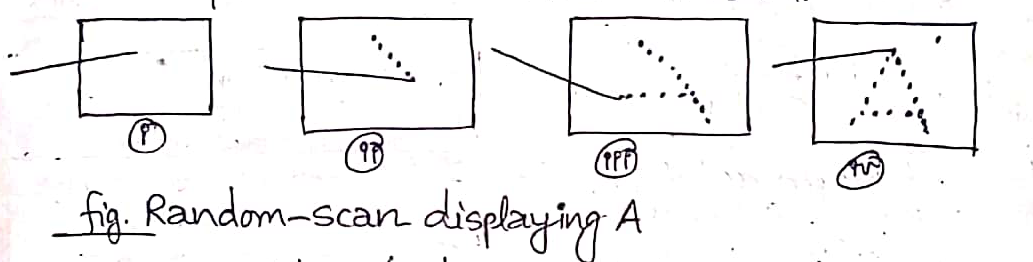 i ii iii iv
fig. Random-scan displaying A